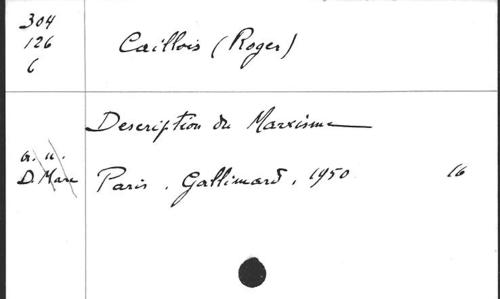 304
126
6
Caillois (Roger)
Description du Marxisme
G. u.
D. Marc
Paris, Gallimard, 1950
16